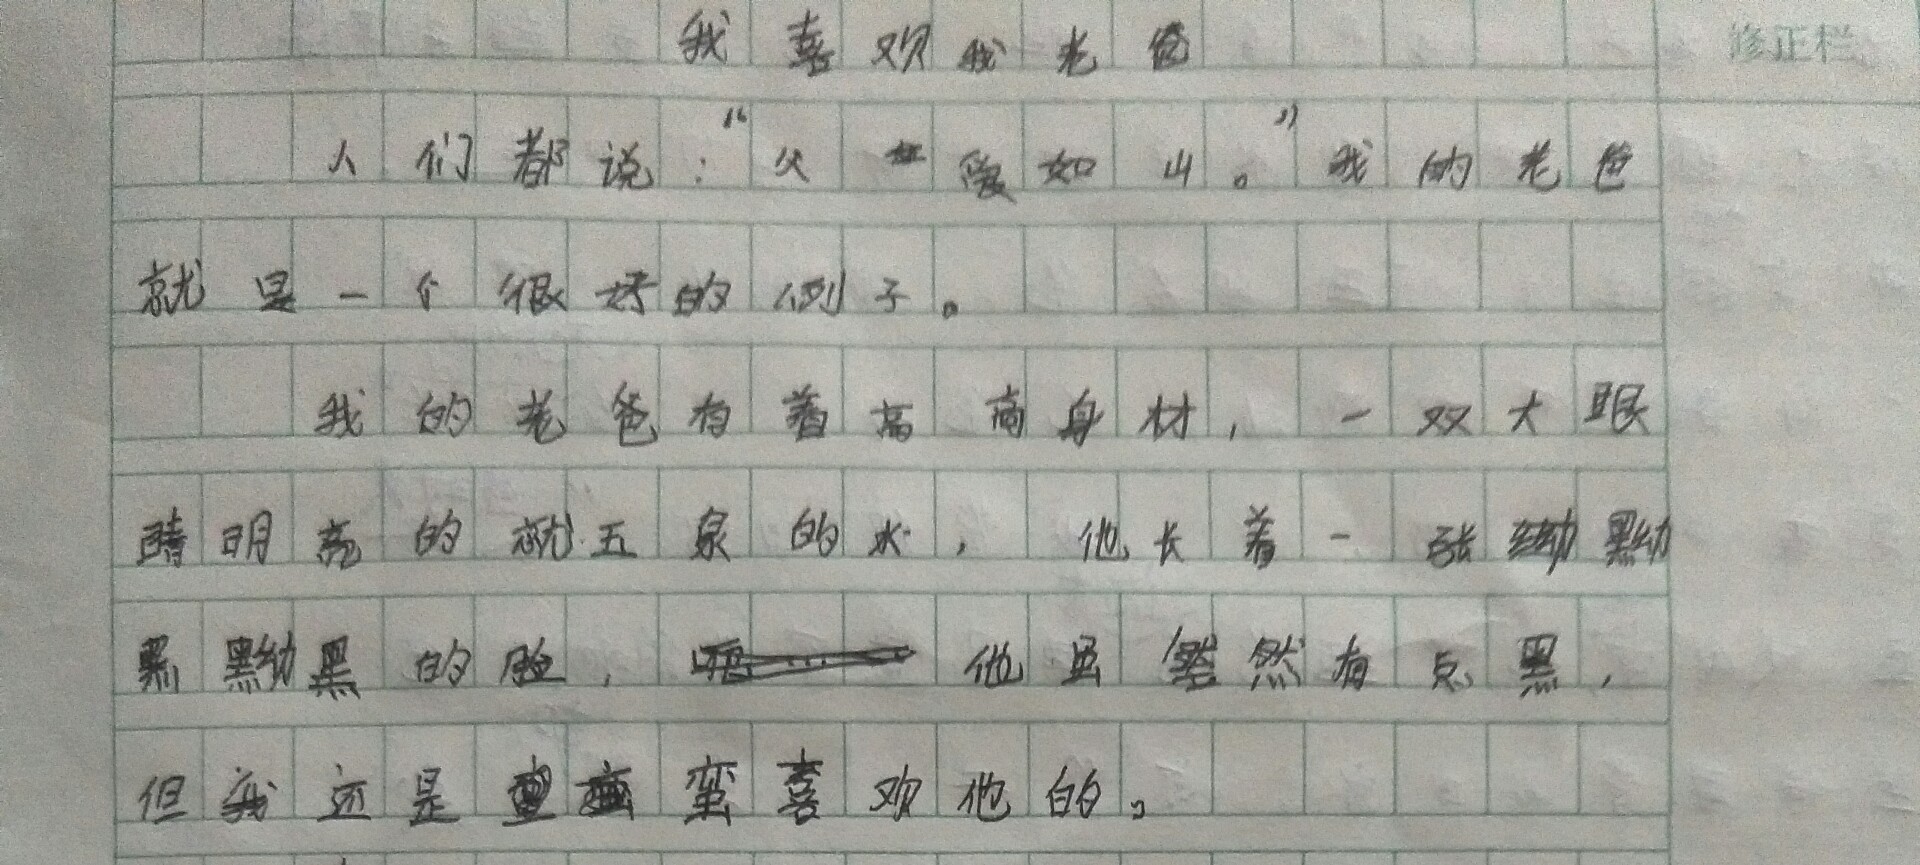 我喜欢我老爸
修正栏
人们都说：“父爱如山。”我的老爸
就是一个很好的例子。
我的老爸有着高高身材，一双大眼
睛明亮的就五泉的水，他长着一张黝
黑黝黑的脸，他虽然有点黑，
但我还是蛮喜欢他的。